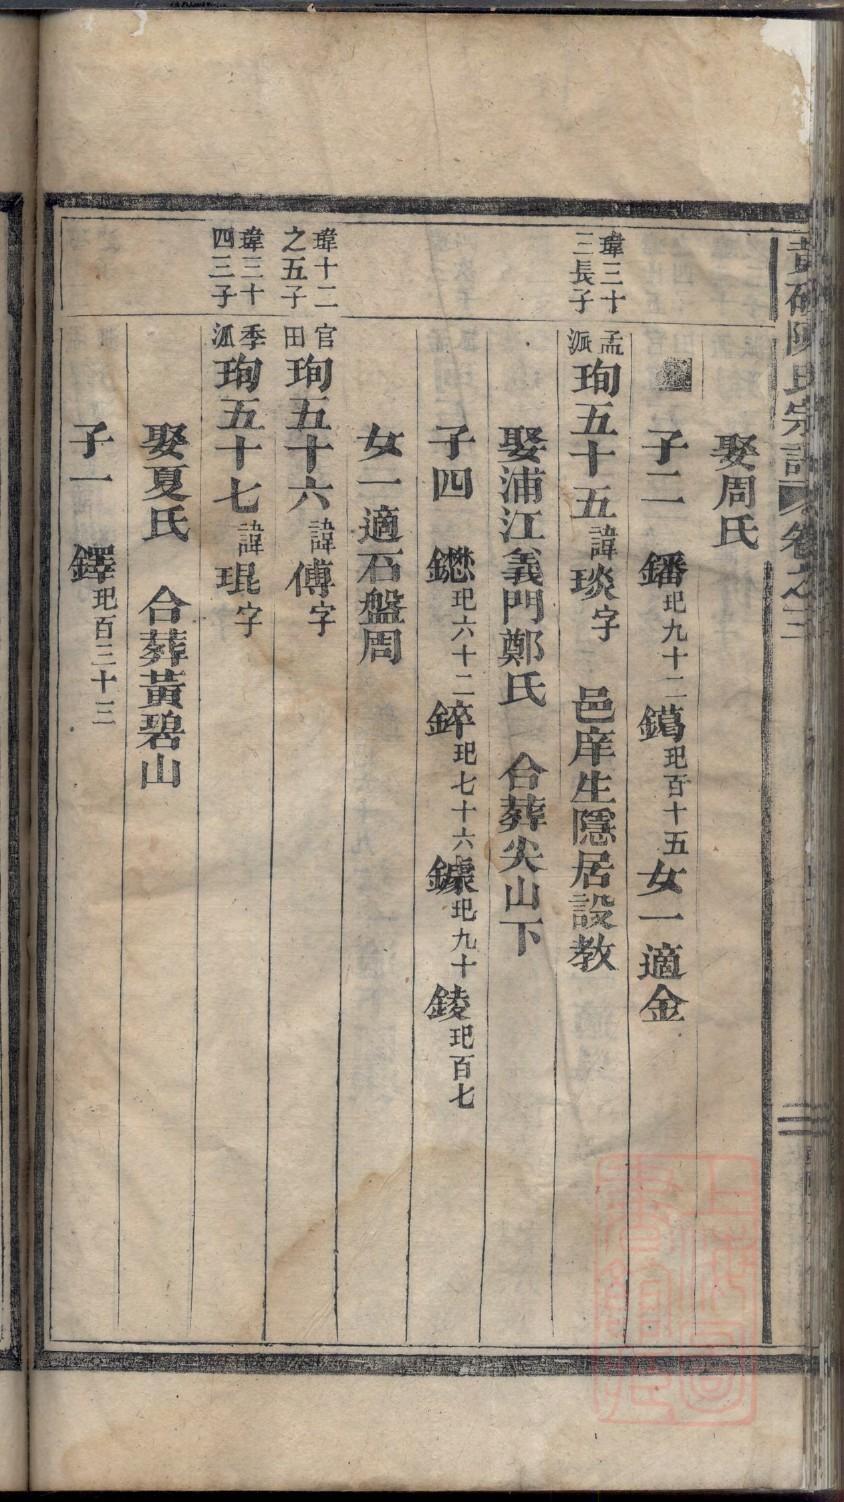 陳氏宗譜 卷之三
娶周氏
子二 鐇玘九十二 鐊玘百十五 女一適金
瑋三十三長子 孟派 珣五十五諱琰字 邑庠生隱居設教
娶浦江義門鄭氏 合葬尖山下
子四 鏳玘六十二 錊玘七十六 鐻玘九十 錂玘百七
女一適石盤周
瑋十二之五子 官田 珣五十六諱傅字
瑋三十四三子 季派 珣五十七諱琨字
娶夏氏 合葬黃碧山
子一 鐸玘百三十三